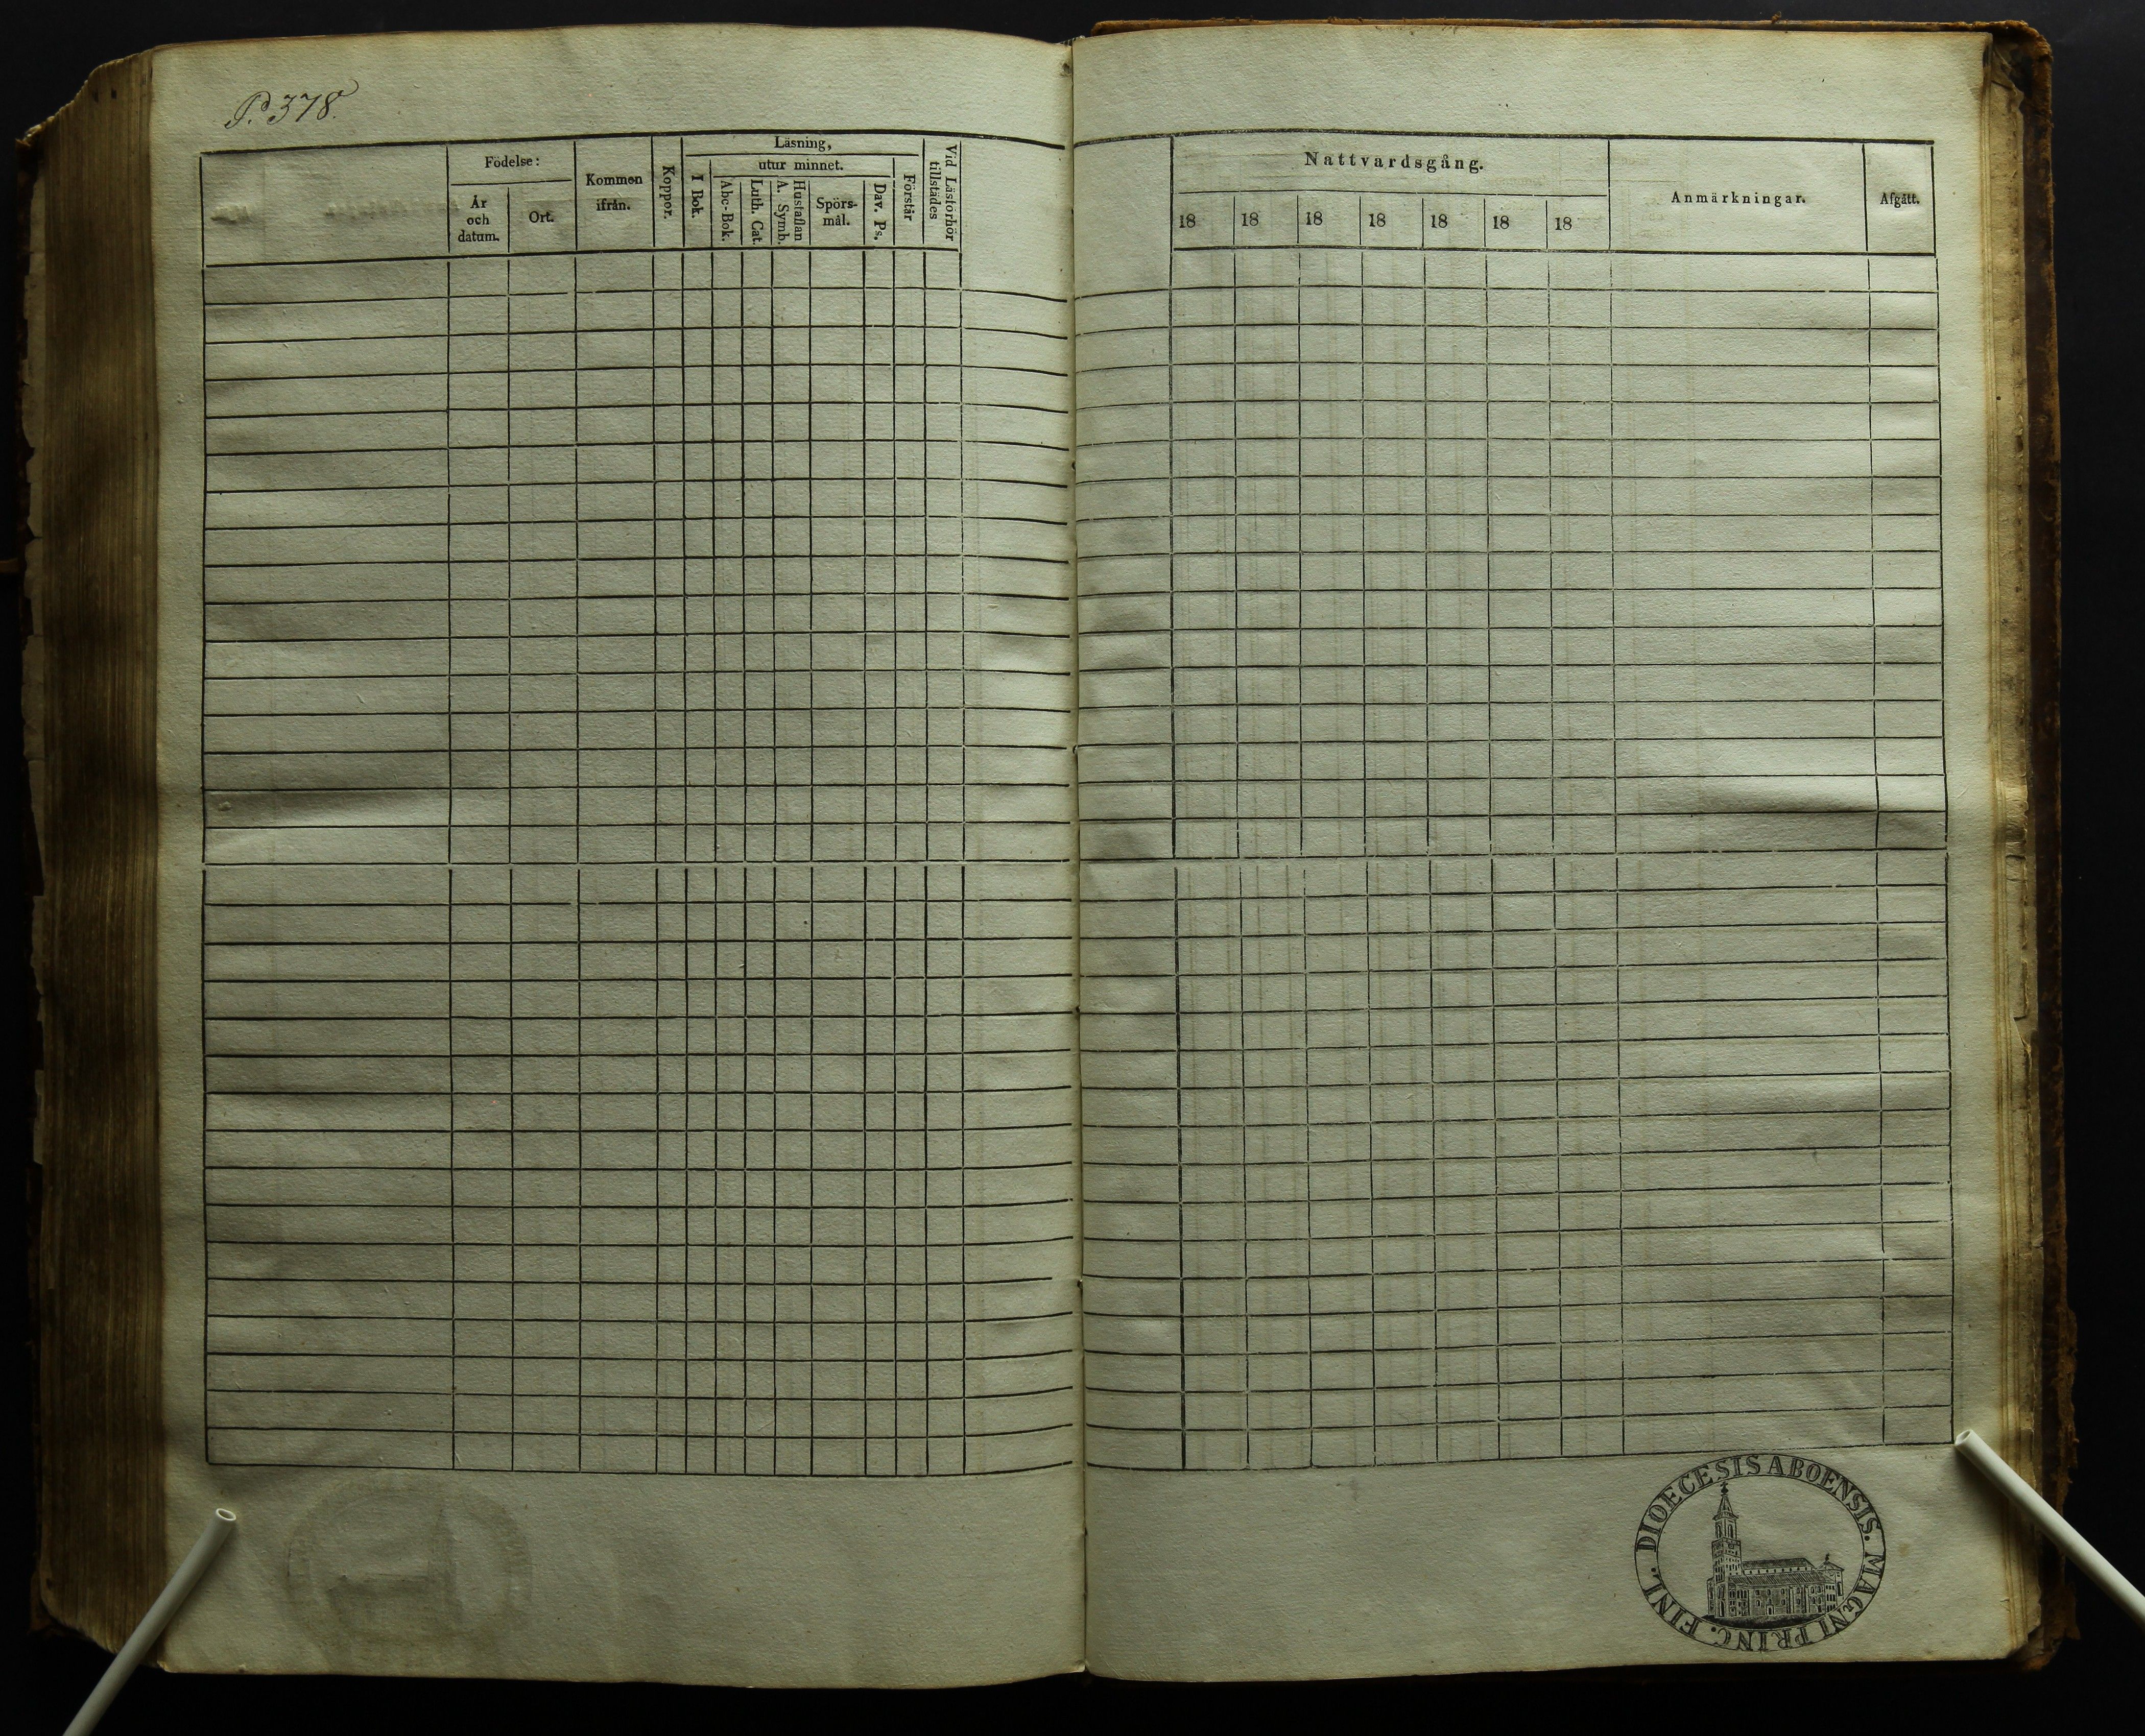 P. 378.
Födelse:
År
och
datum.
Ort.
Kommen
ifrån.
Koppor.
Läsning,
I Bok.
utur minnet.
Abc-Bok.
Luth. Cat.
Hustaflan
A. Symb.
Spörs-
mål.
Dav. Ps.
Förstår
Vid Läsförhör
tillstädes
Nattvardsgång.
18 18 18 18 18 18 18
Anmärkningar.
Afgått.
DIOECESIS ABOENSIS. MAGNI PRINC. FINL.